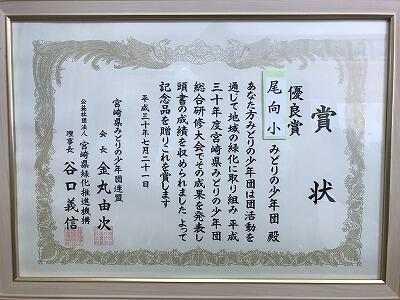 賞状
優良賞
尾向小みどりの少年団殿
あなた方みどりの少年団は団活動を
通して地域の緑化に取り組み平成
三十年度宮崎県みどりの少年団
総合研修大会でその成果を発表し
頭書の成績を収められましたよって
記念品を贈りこれを賞します
平成三十年七月二十一日
宮崎県みどりの少年団連盟
会長 金丸由次
公益社団法人 宮崎県緑化推進機構
理事長 谷口義信